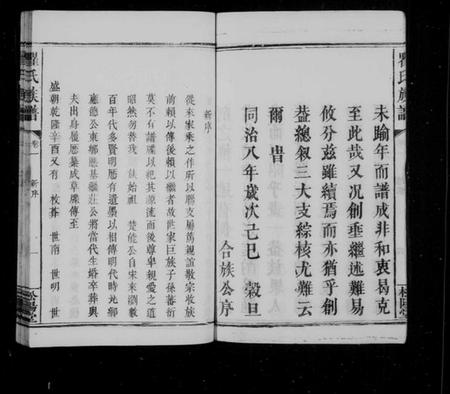 瞿氏族譜
未踰年而譜成非和衷曷克
至此哉又况創垂繼述難易
攸分茲雖續焉而亦猶乎創
益總叙三大支綜核尤難云
爾 旹
同治八年歲次己巳 穀旦
合族公序
新序
從來家乘之作所以聯支屬篤親誼敬宗收族
前賴以傳後賴以繼者故世家巨族子孫蕃衍
莫不有譜牒以紀其源流而後尊卑親愛之道
昭然勿替我 始祖 楚能公自宋來瀏數
百年代多賢明歷有遺墨以相傳明代時光
應德公東鄉歷基繼莊公將當代生婚卒葬與
夫出身履歷彙成草牒傳至
盛朝乾隆辛酉又有 枚莽 世南 世明 世
瞿氏族譜
卷一
新序